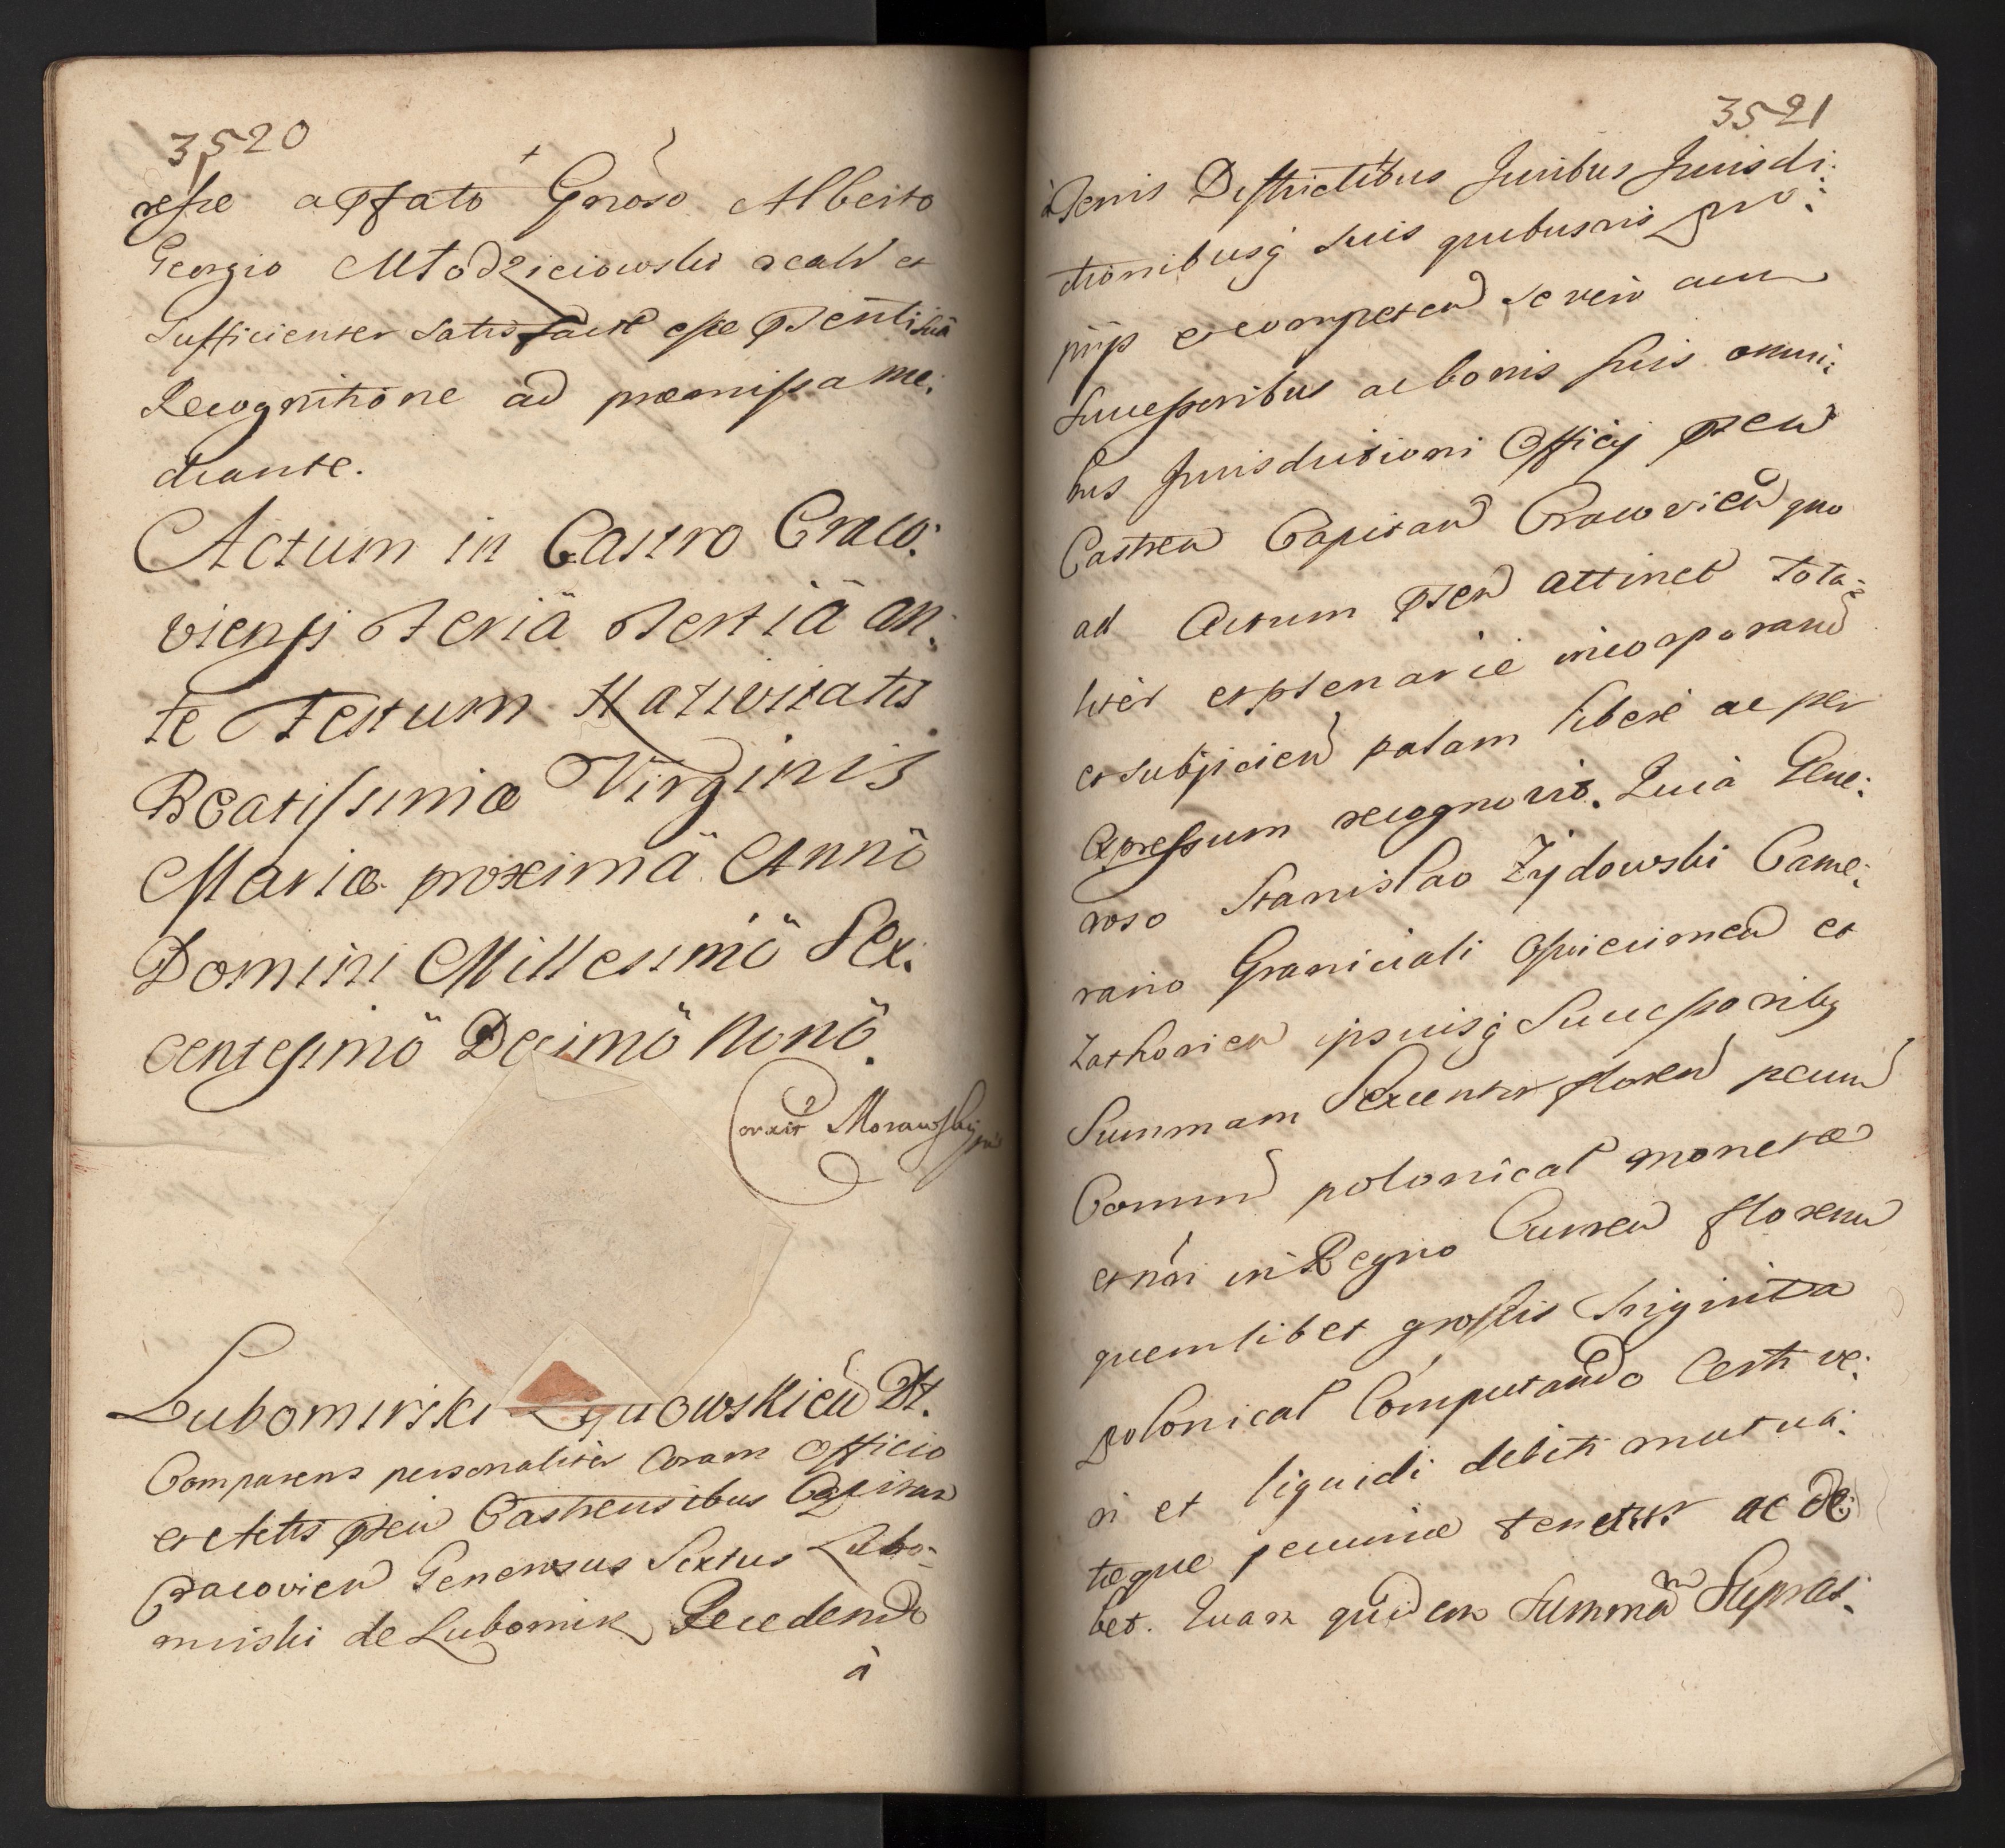 3520
resse a pfato Gnoso Alberto
Georgio Młodziciowski reald et
Sufficienter Satisfactt esse Psenti sua
Recognitione ad præmissa me:
diante.
Actum in Castro Craco:
viensi Feriä Tertiä an:
te Festum Nativitatis
Beatissimæ Virginis
Mariæ proximä Annö
Domini Millesimö Sex:
centesimö Decimö Nonö.
Corxit Morawski mp
Lubomirski Dt.
Comparens personaliter Coram Officio
et Actis Psen Castrensibus Capitan
Cracovien Generosus Sextus Lubo:
mirski de Lubomir Recedendo
à
3521
à Terris Districtibus Juribus Jurisdi:
ctionibusq Suis quibusvis pro:
prijs et competen se vero cum
Successoribus ac bonis suis omni:
bus Jurisdictioni Officij Psen
Castren Capitan Cracovien quo
ad Actum Psen attinet tota:
liter et plenarie incorporand
et subijcien palam libere ac per
Expressum recognovit. Quia Gene:
roso Stanislao Zÿdowski Came:
rario Graniciali Oswiecimen et
Zathorien ipsiusq Successoribq
Summam Sexcentor floren pecun
Commun polonical monetæ
et nri in Regno Curren floren
quemlibet grossis Triginta
polonical Computando Certi ve:
ri et liquidi debiti mutuæ:
tæque pecuniæ tenetur ac De:
bet. Quam quidem Summam Suprat: